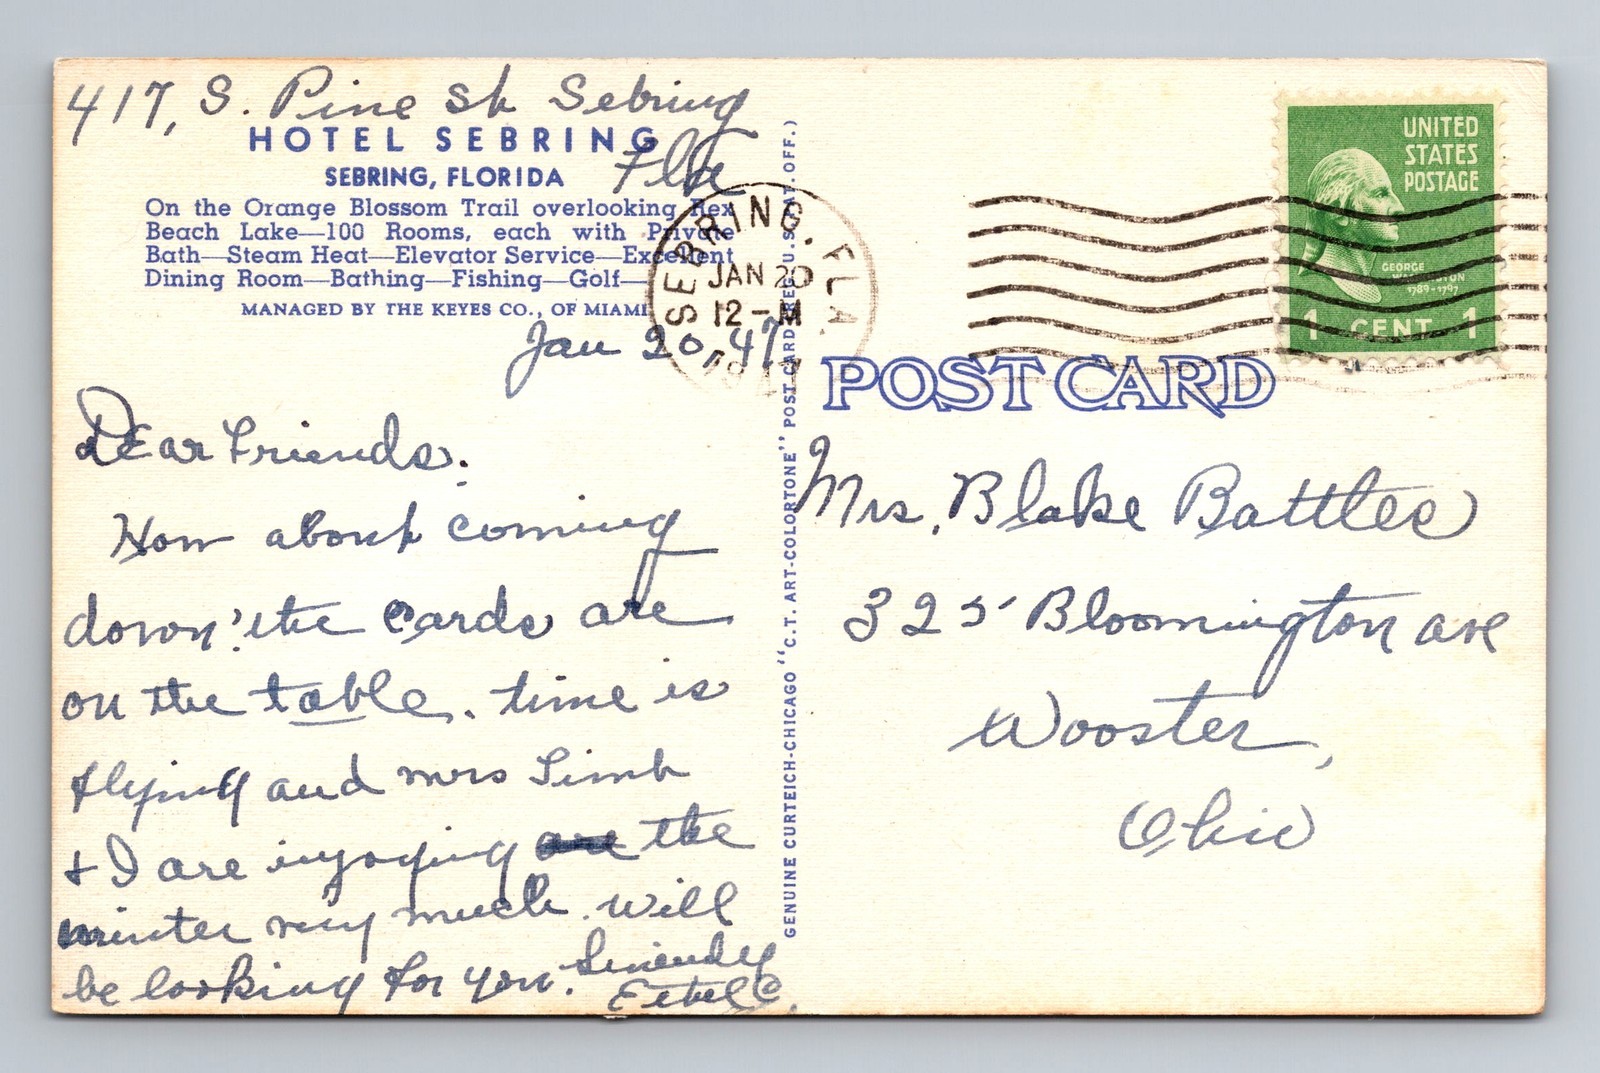 417, S. Pine St Sebring
Fla
HOTEL SEBRING
SEBRING, FLORIDA
On the Orange Blossom Trail overlooking Rex
Beach Lake—100 Rooms, each with Private
Bath—Steam Heat—Elevator Service—Excellent
Dining Room—Bathing—Fishing—Golf—
MANAGED BY THE KEYES CO., OF MIAMI
Jan 20 47
Dear Friends.
How about coming
down! the cards are
on the table. time is
flying and mrs
& I are injoying the
winter very much. will
be looking for you.
Ethel C.
GENUINE CURTEICH-CHICAGO "C.T. ART-COLORTONE" POST CARD (REG. U.S. PAT. OFF.)
SEBRING, FLA.
JAN 20
12-M
1947
UNITED
STATES
POSTAGE
GEORGE
WASHINGTON
1789-1797
1 CENT 1
POST CARD
Mrs. Blake Battles
325 Bloomington ave
Wooster,
Ohio